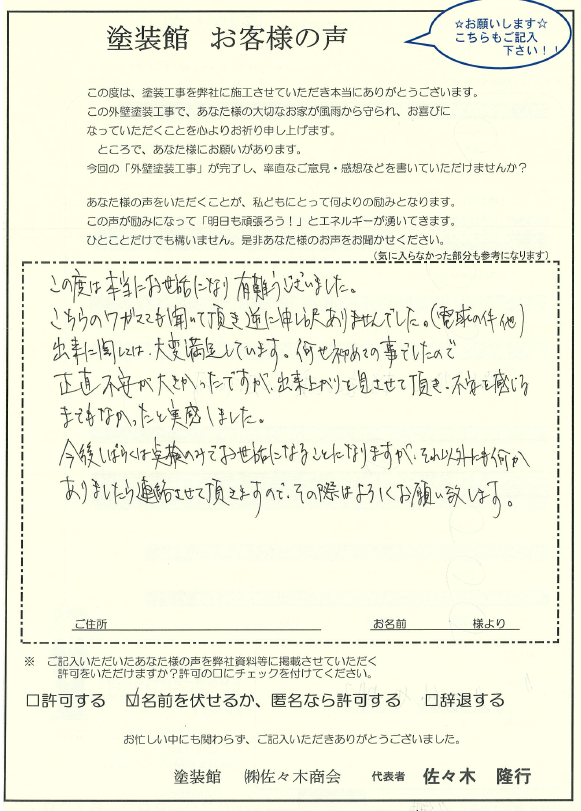 塗装館 お客様の声
☆お願いします☆
こちらもご記入
下さい！！
この度は、塗装工事を弊社に施工させていただき本当にありがとうございます。
この外壁塗装工事で、あなた様の大切なお家が風雨から守られ、お喜びに
なっていただくことを心よりお祈り申し上げます。
ところで、あなた様にお願いがあります。
今回の「外壁塗装工事」が完了し、率直なご意見・感想などを書いていただけませんか？
あなた様の声をいただくことが、私どもにとって何よりの励みとなります。
この声が励みになって「明日も頑張ろう！」とエネルギーが湧いてきます。
ひとことだけでも構いません。是非あなた様のお声をお聞かせください。
（気に入らなかった部分も参考になります）
この度は本当にお世話になり有難うございました。
こちらのワガママも聞いて頂き逆に申し訳ありませんでした。（電球の件他）
出来に関しては、大変満足しています。何せ初めての事でしたので
正直不安が大きかったですが、出来上がりを見させて頂き、不安を感じる
までもなかったと実感しました。
今後しばらくは点検のみでお世話になることになりますが、それ以外にも何か
ありましたら連絡させて頂きますので、その際はよろしくお願い致します。
ご住所
お名前 様より
※ ご記入いただいたあなた様の声を弊社資料等に掲載させていただく
許可をいただけますか？許可の口にチェックを付けてください。
□許可する ☑名前を伏せるか、匿名なら許可する □辞退する
お忙しい中にも関わらず、ご記入いただきありがとうございました。
塗装館 ㈱佐々木商会 代表者 佐々木 隆行